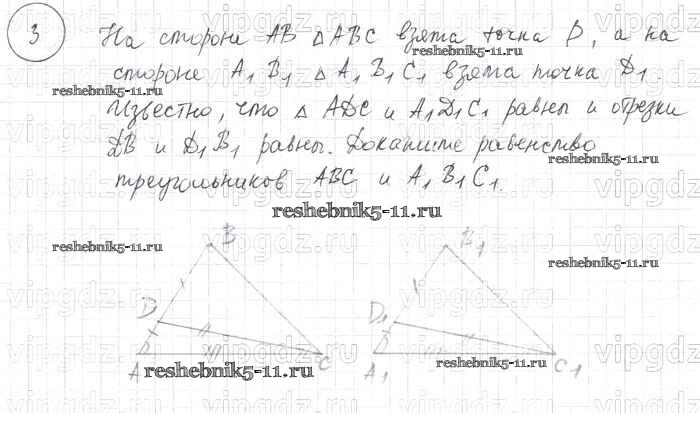 3
На стороне AB △ABC взята точка D, а на
стороне A₁B₁ △A₁B₁C₁ взята точка D₁.
Известно, что △ ADC и A₁D₁C₁ равны и отрезки
DB и D₁B₁ равны. Докажите равенство
треугольников ABC и A₁B₁C₁.
reshebnik5-11.ru
reshebnik5-11.ru
reshebnik5-11.ru
reshebnik5-11.ru
reshebnik5-11.ru
reshebnik5-11.ru
reshebnik5-11.ru
reshebnik5-11.ru
B
B₁
D
D₁
A
C
A₁
C₁
vipgdz.ru